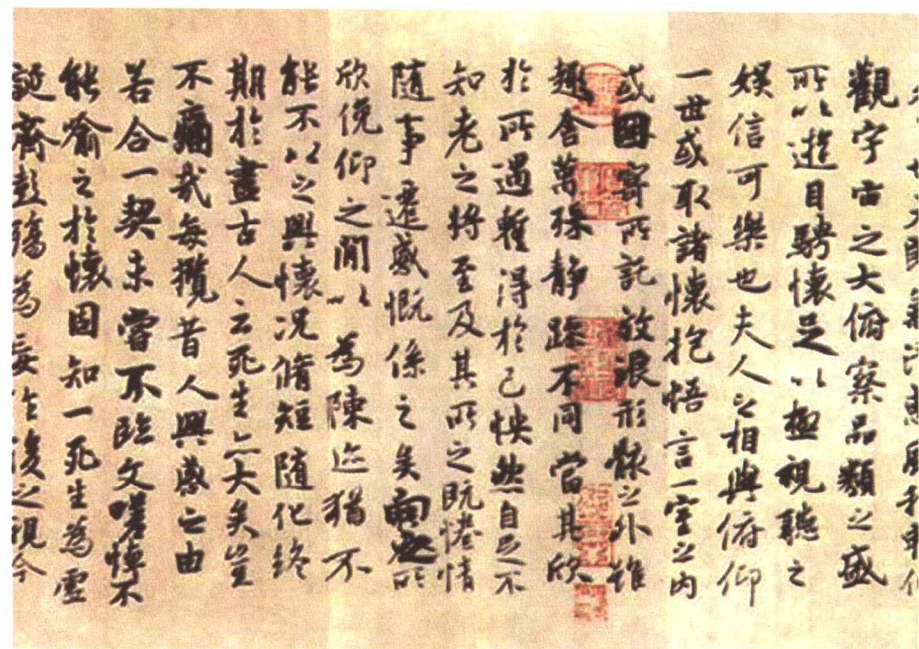 觀宇宙之大俯察品類之盛
所以遊目騁懷足以極視聽之
娛信可樂也夫人之相與俯仰
一世或取諸懷抱悟言一室之內
或因寄所託放浪形骸之外雖
趣舍萬殊靜躁不同當其欣
於所遇暫得於己怏然自足不
知老之將至及其所之既惓情
隨事遷感慨係之矣向之所
欣俛仰之閒以為陳迹猶不
能不以之興懷況脩短隨化終
期於盡古人云死生亦大矣豈
不痛哉每攬昔人興感之由
若合一契未嘗不臨文嗟悼不
能喻之於懷固知一死生為虛
誕齊彭殤為妄作後之視今